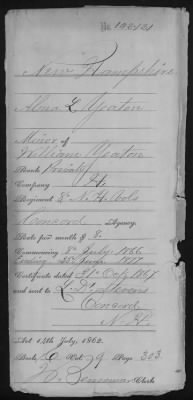 No. 102421
New Hampshire
Alma L. Yeaton
Minor of
William Yeaton
Rank Private
Company H.
Regiment 2 N.H. Vols
Concord Agency.
Rate per month $ 8.
Commencing 5" July 1866
Ending
Certificate dated 21" Oct 1867
and sent to L. D. Stevens
Concord
N. H.
Act 14th July, 1862.
Book Vol. 9 Page 303
Clerk